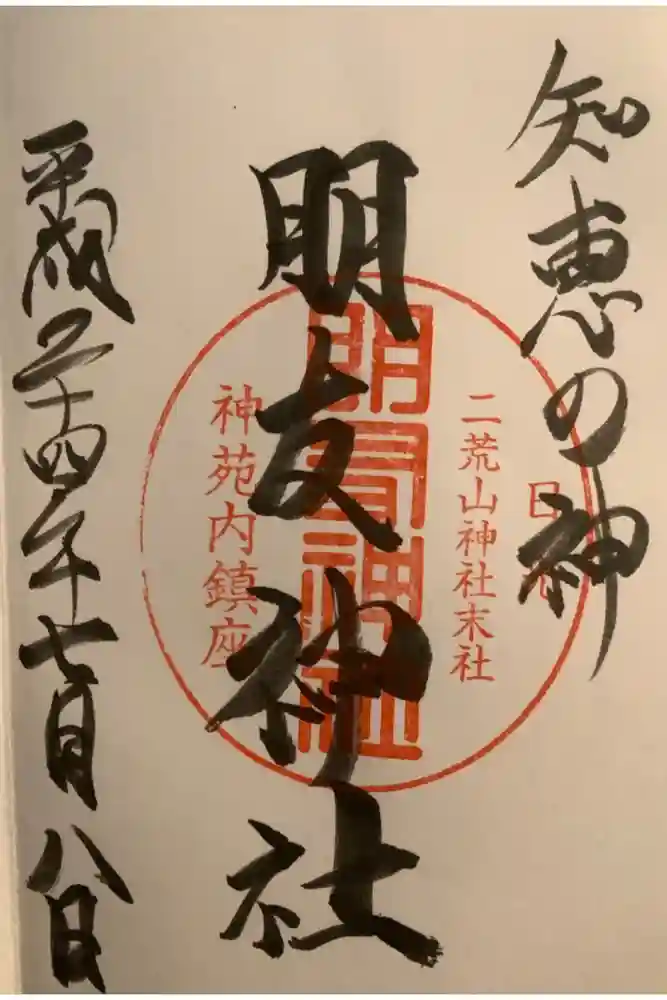 知恵の神
日光
二荒山神社末社
朋友神社
朋友神社
神苑内鎮座
平成二十四年七月八日